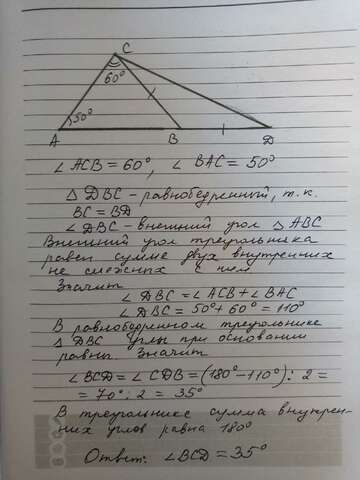 C
60°
50°
A B D
∠ACB = 60°, ∠BAC = 50°
△ DBC – равнобедренный, т.к.
BC = BD
∠DBC – внешний угол △ ABC
Внешний угол треугольника
равен сумме двух внутренних
не смежных с ним
Значит
∠DBC = ∠ACB + ∠BAC
∠DBC = 50° + 60° = 110°
В равнобедренном треугольнике
△ DBC углы при основании
равны. Значит
∠BCD = ∠CDB = (180° – 110°) : 2 =
= 70° : 2 = 35°
В треугольнике сумма внутрен-
них углов равна 180°
Ответ: ∠BCD = 35°